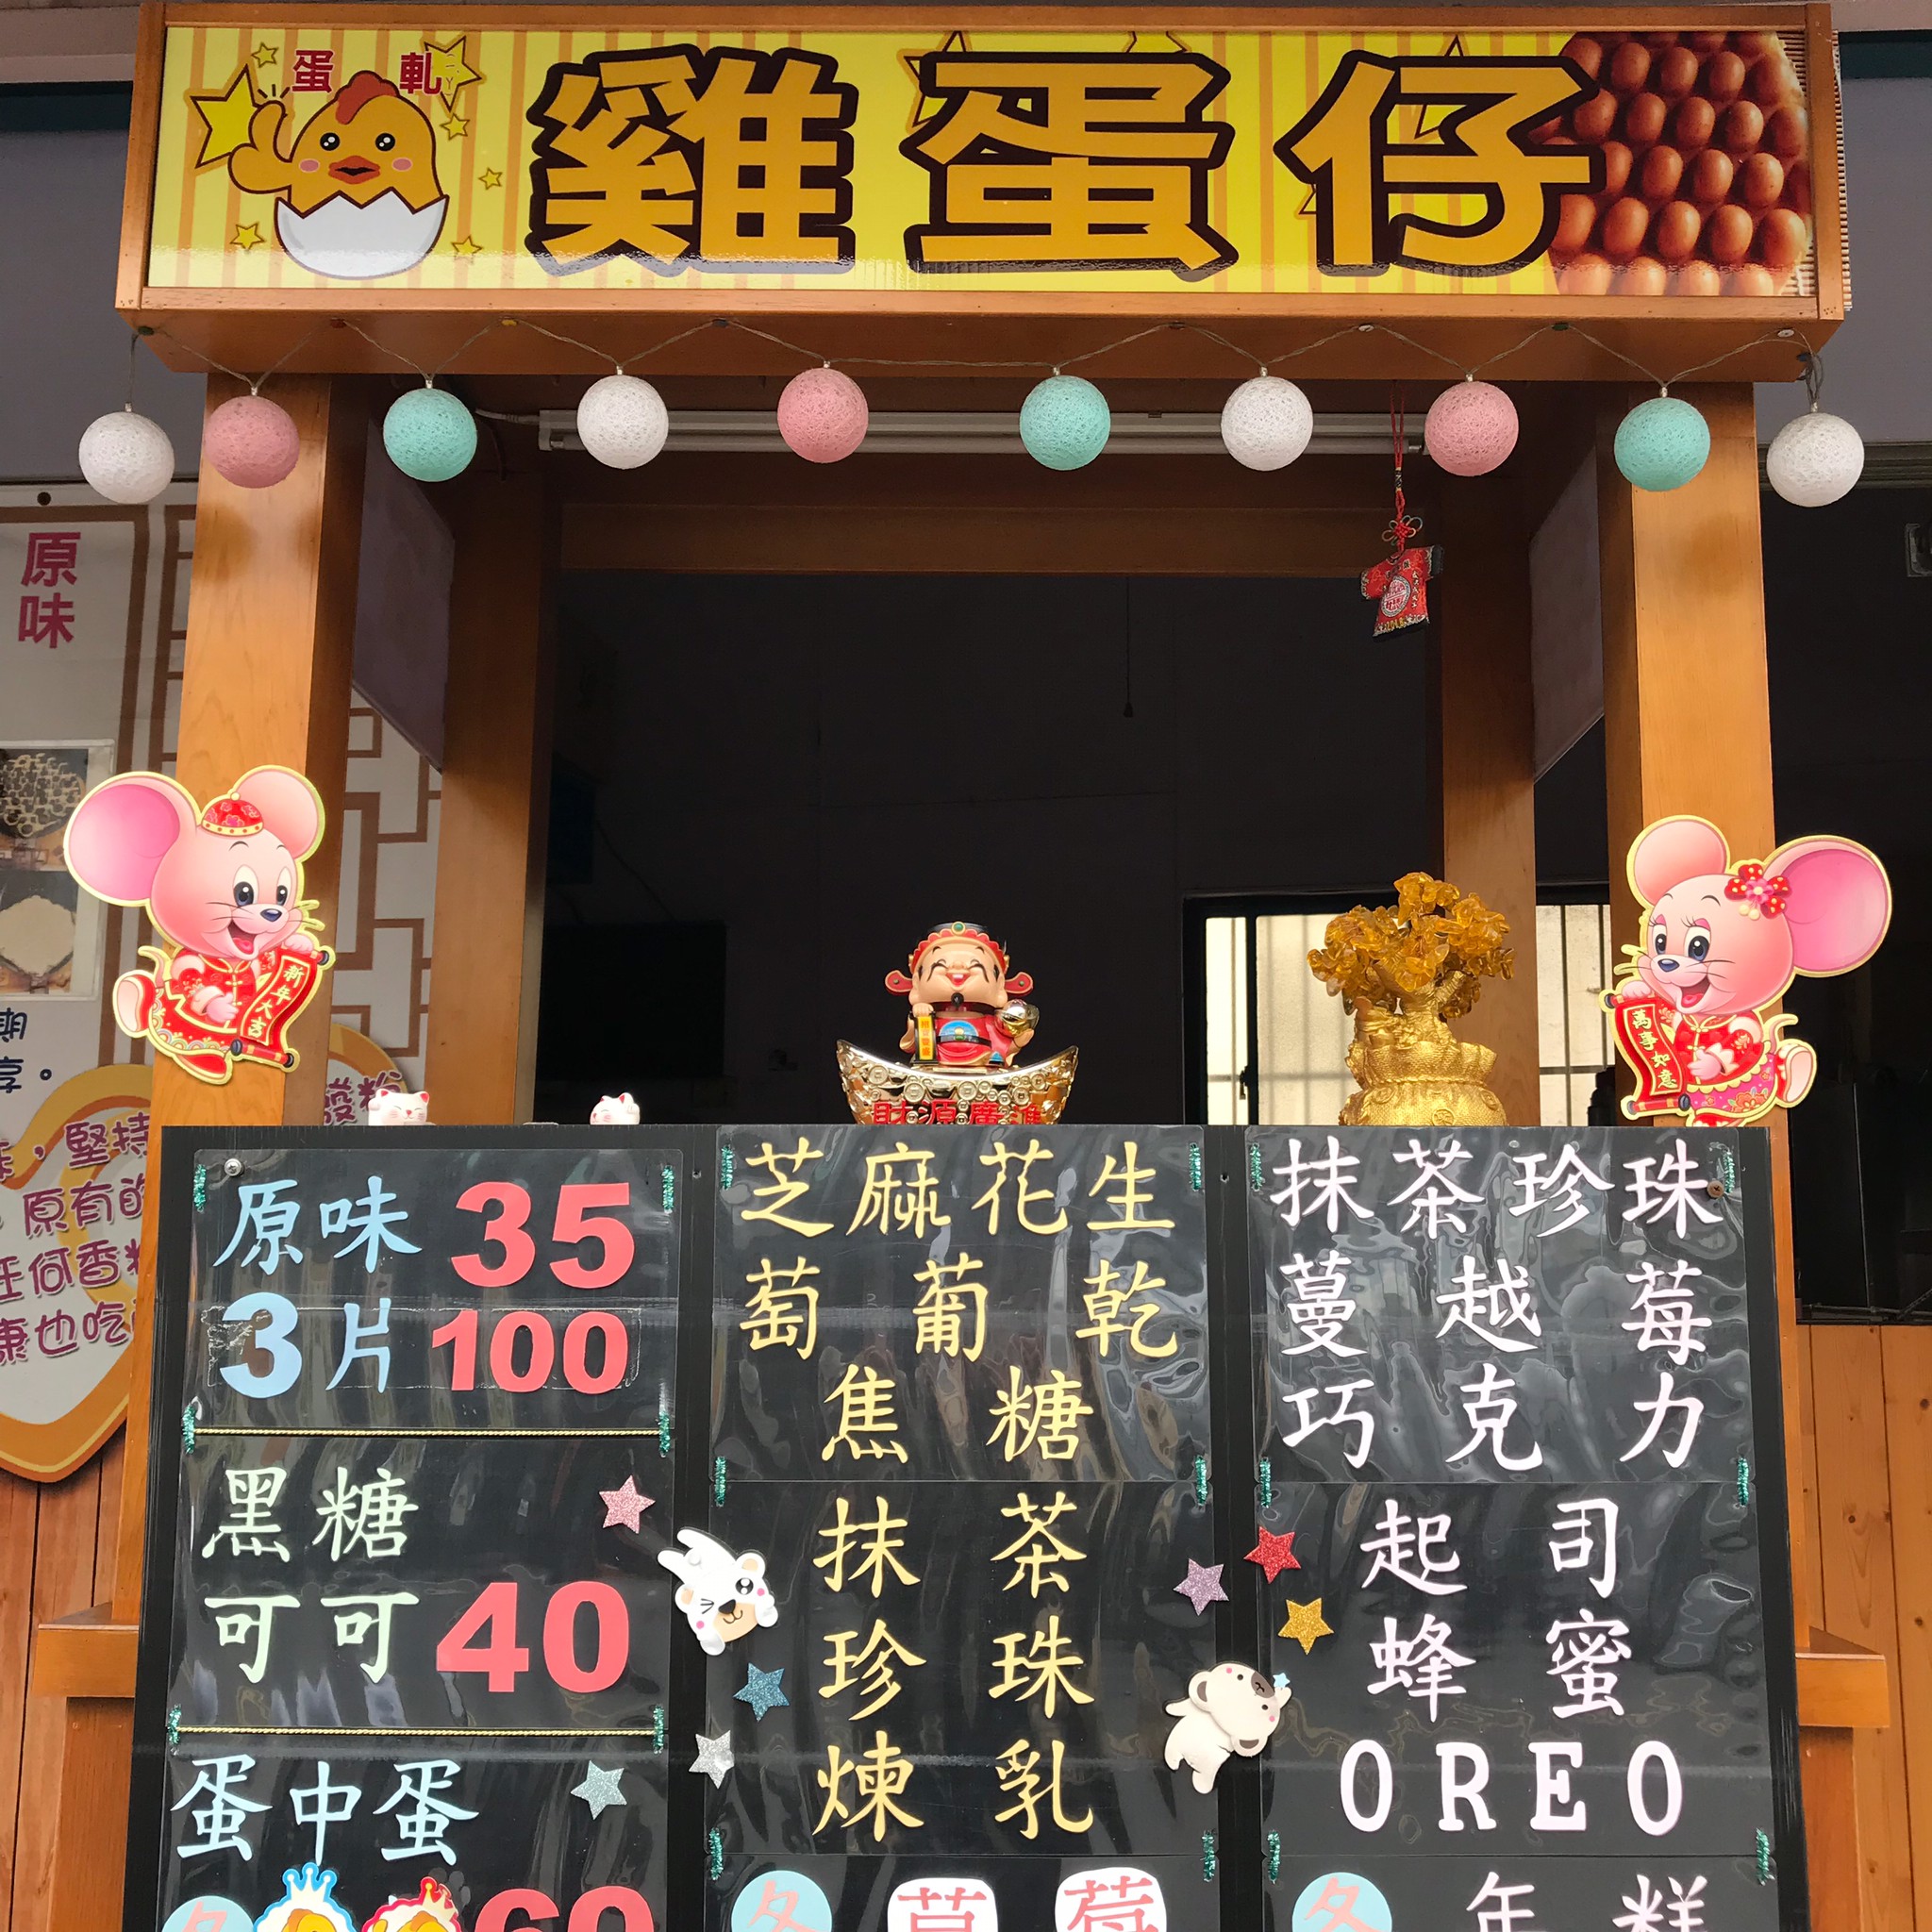 蛋 軋
雞蛋仔
原味
新年大吉
萬事如意
財源廣進
期
享。
發粉
，堅持
原有的
任何香料
康也吃
原味 35
3片 100
黑糖
可可 40
蛋中蛋
冬 60
芝麻花生
萄葡乾
焦糖
抹茶
珍珠
煉乳
冬 草莓
抹茶珍珠
蔓越莓
巧克力
起司
蜂蜜
OREO
冬 年糕